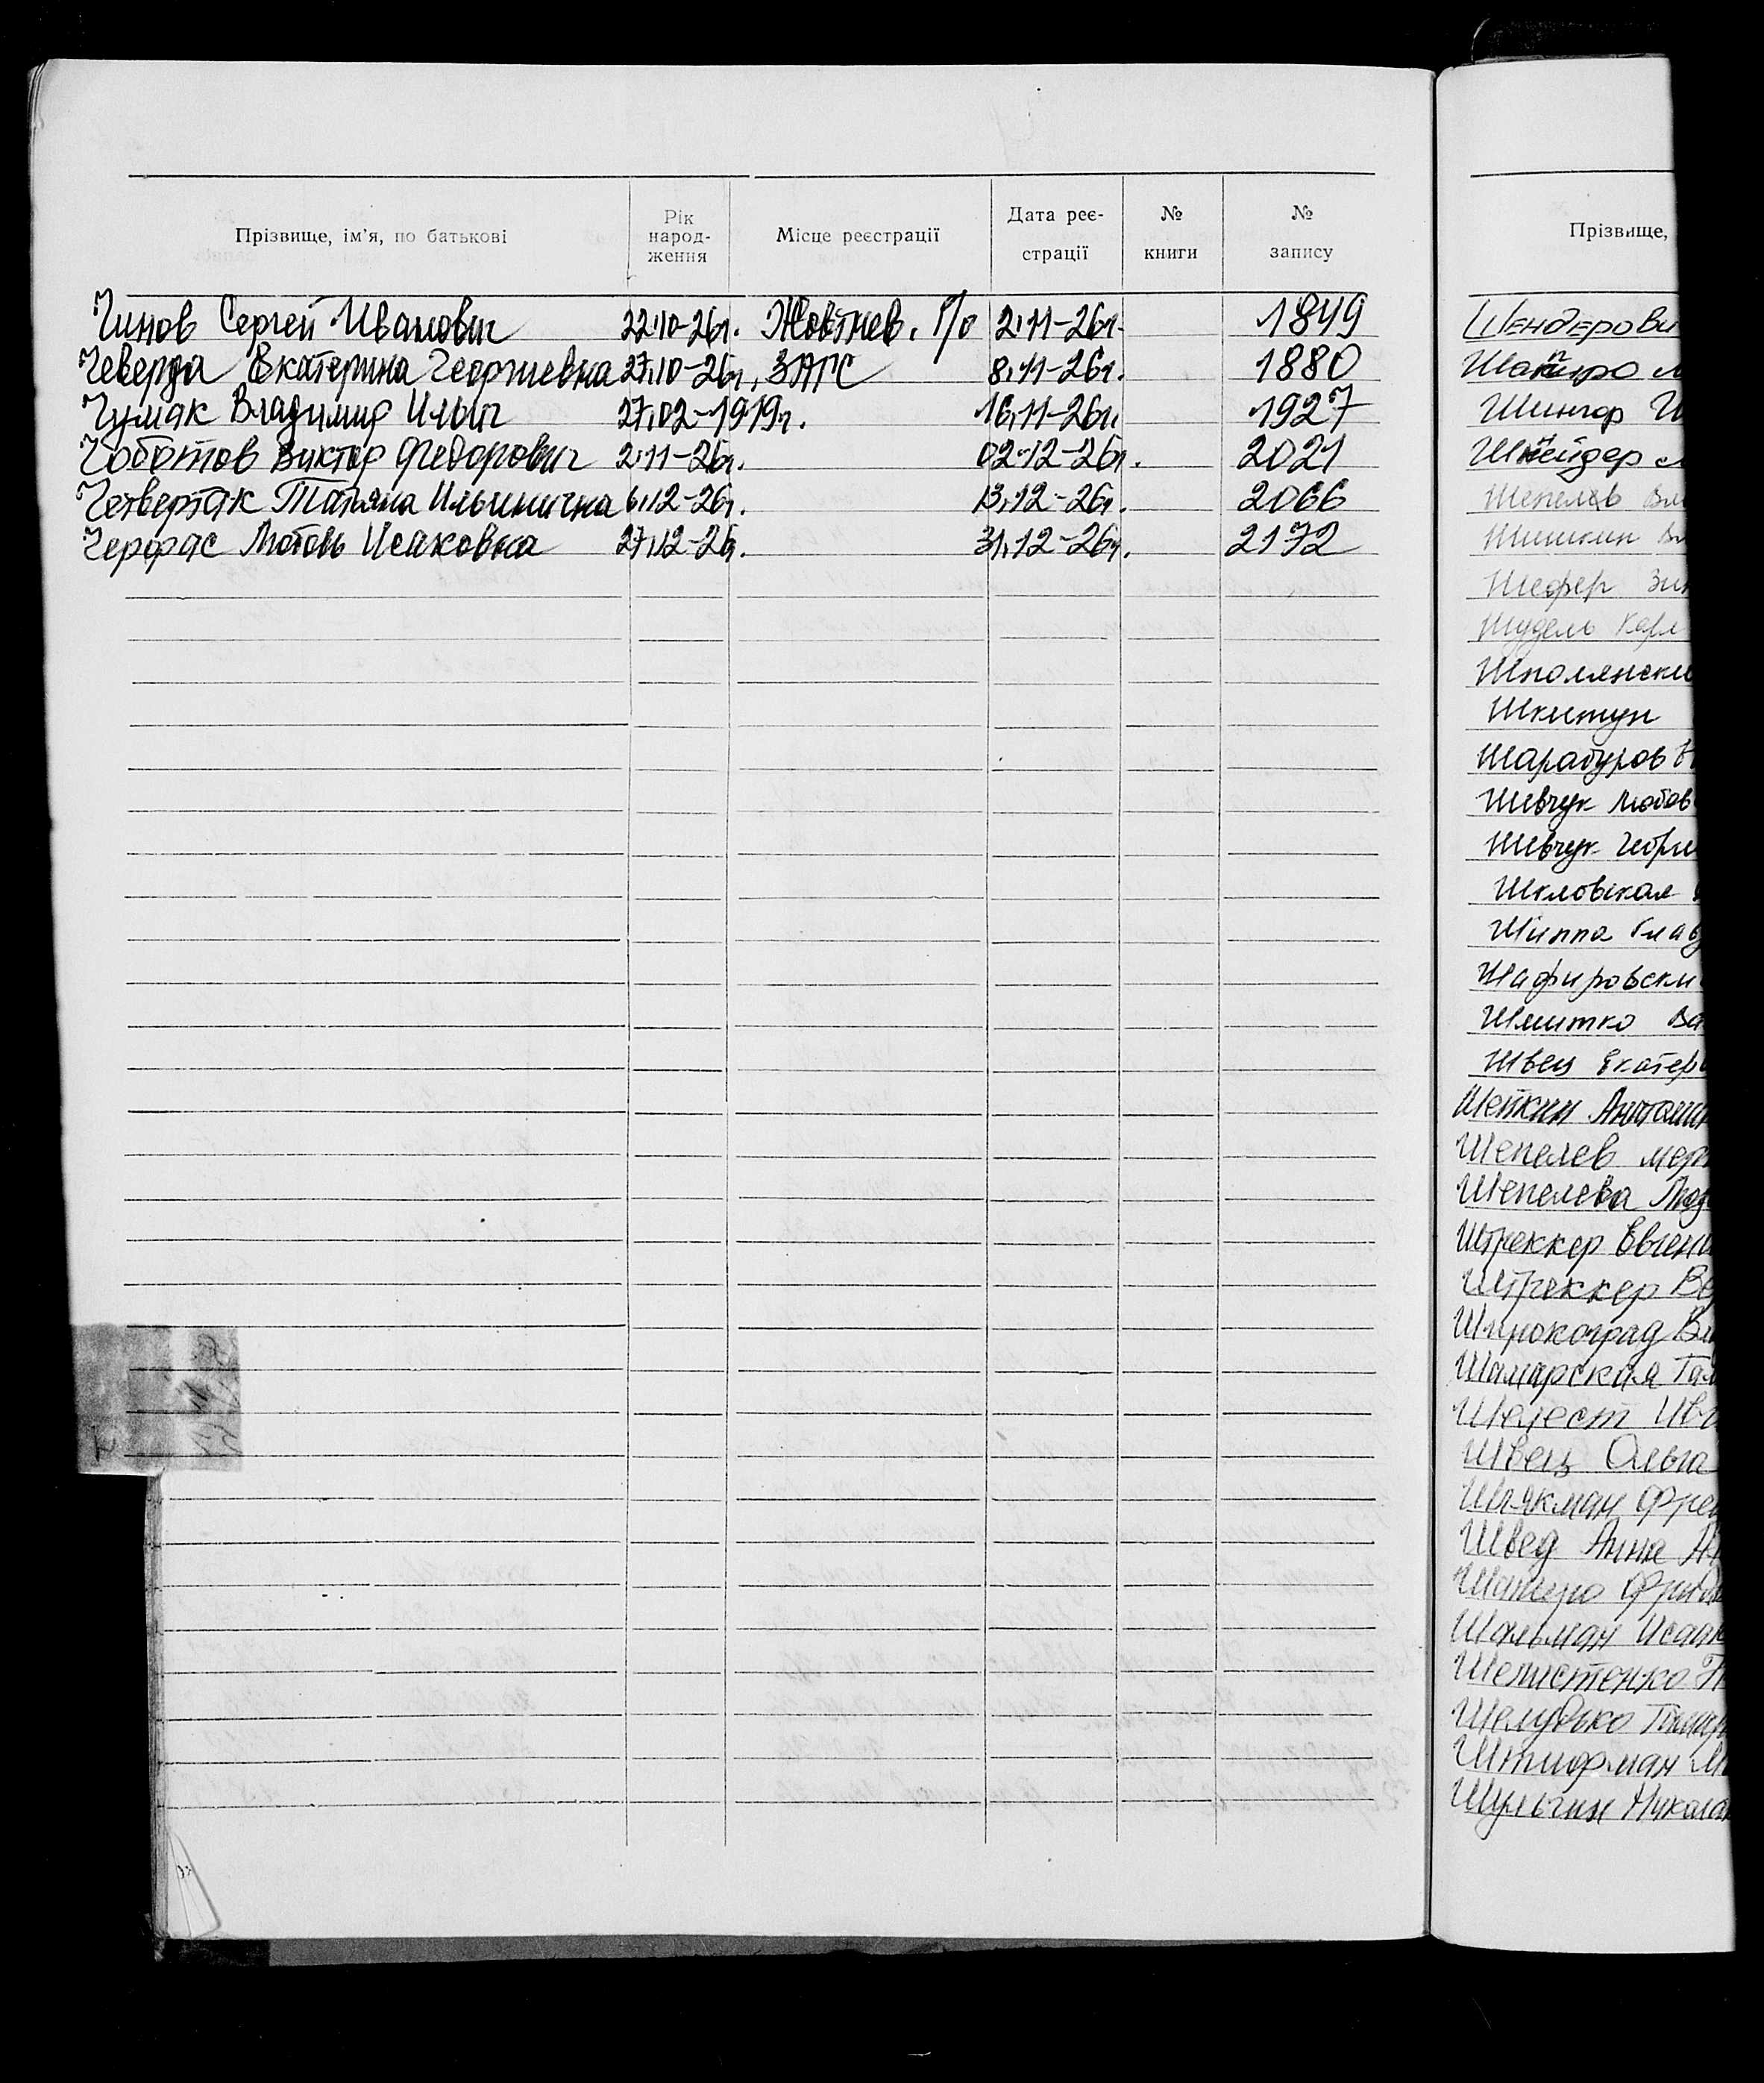 Прізвище, ім’я, по батькові
Рік народ-ження
Місце реєстрації
Дата реє-страції
№ книги
№ запису
Чинов Сергей Иванович 22.10-26г. Жовтнев. Р/о 2.11-26г. 1849
Чеверда Екатерина Георгиевна 27.10-26г. ЗАГС 8.11-26г. 1880
Чумак Владимир Ильич 27.02-1919г. 16.11-26г. 1927
Чоботов Виктор Федорович 2.11-26г. 02.12-26г. 2021
Четвертак Татьяна Ильинична 6.12-26г. 13.12-26г. 2066
Черфас Любовь Исаковна 27.12-26г. 31.12-26г. 2172
Прізвище,
Шендерови
Шапиро
Шингар
Шнейдер
Шепелев Вл
Шишкин Вл
Шефер Зин
Шудель Карл
Шполянски
Шкитун
Шарабуров
Шевчук Любов
Шевчук Георги
Шкловская
Шиппа Глав
Шафировски
Шмитко Ва
Швец Екатери
Шейкин Анатоли
Шепелев мер
Шепелева Люд
Штреккер Евгени
Штреккер Ве
Широкоград Вл
Шамарская Гал
Шелест Ив
Швец Ольга
Шпакман Фре
Швед Анна
Шапиро Фрид
Шальман Исаак
Шелистенко
Шелудько Тамар
Штифман
Шульгин Никола